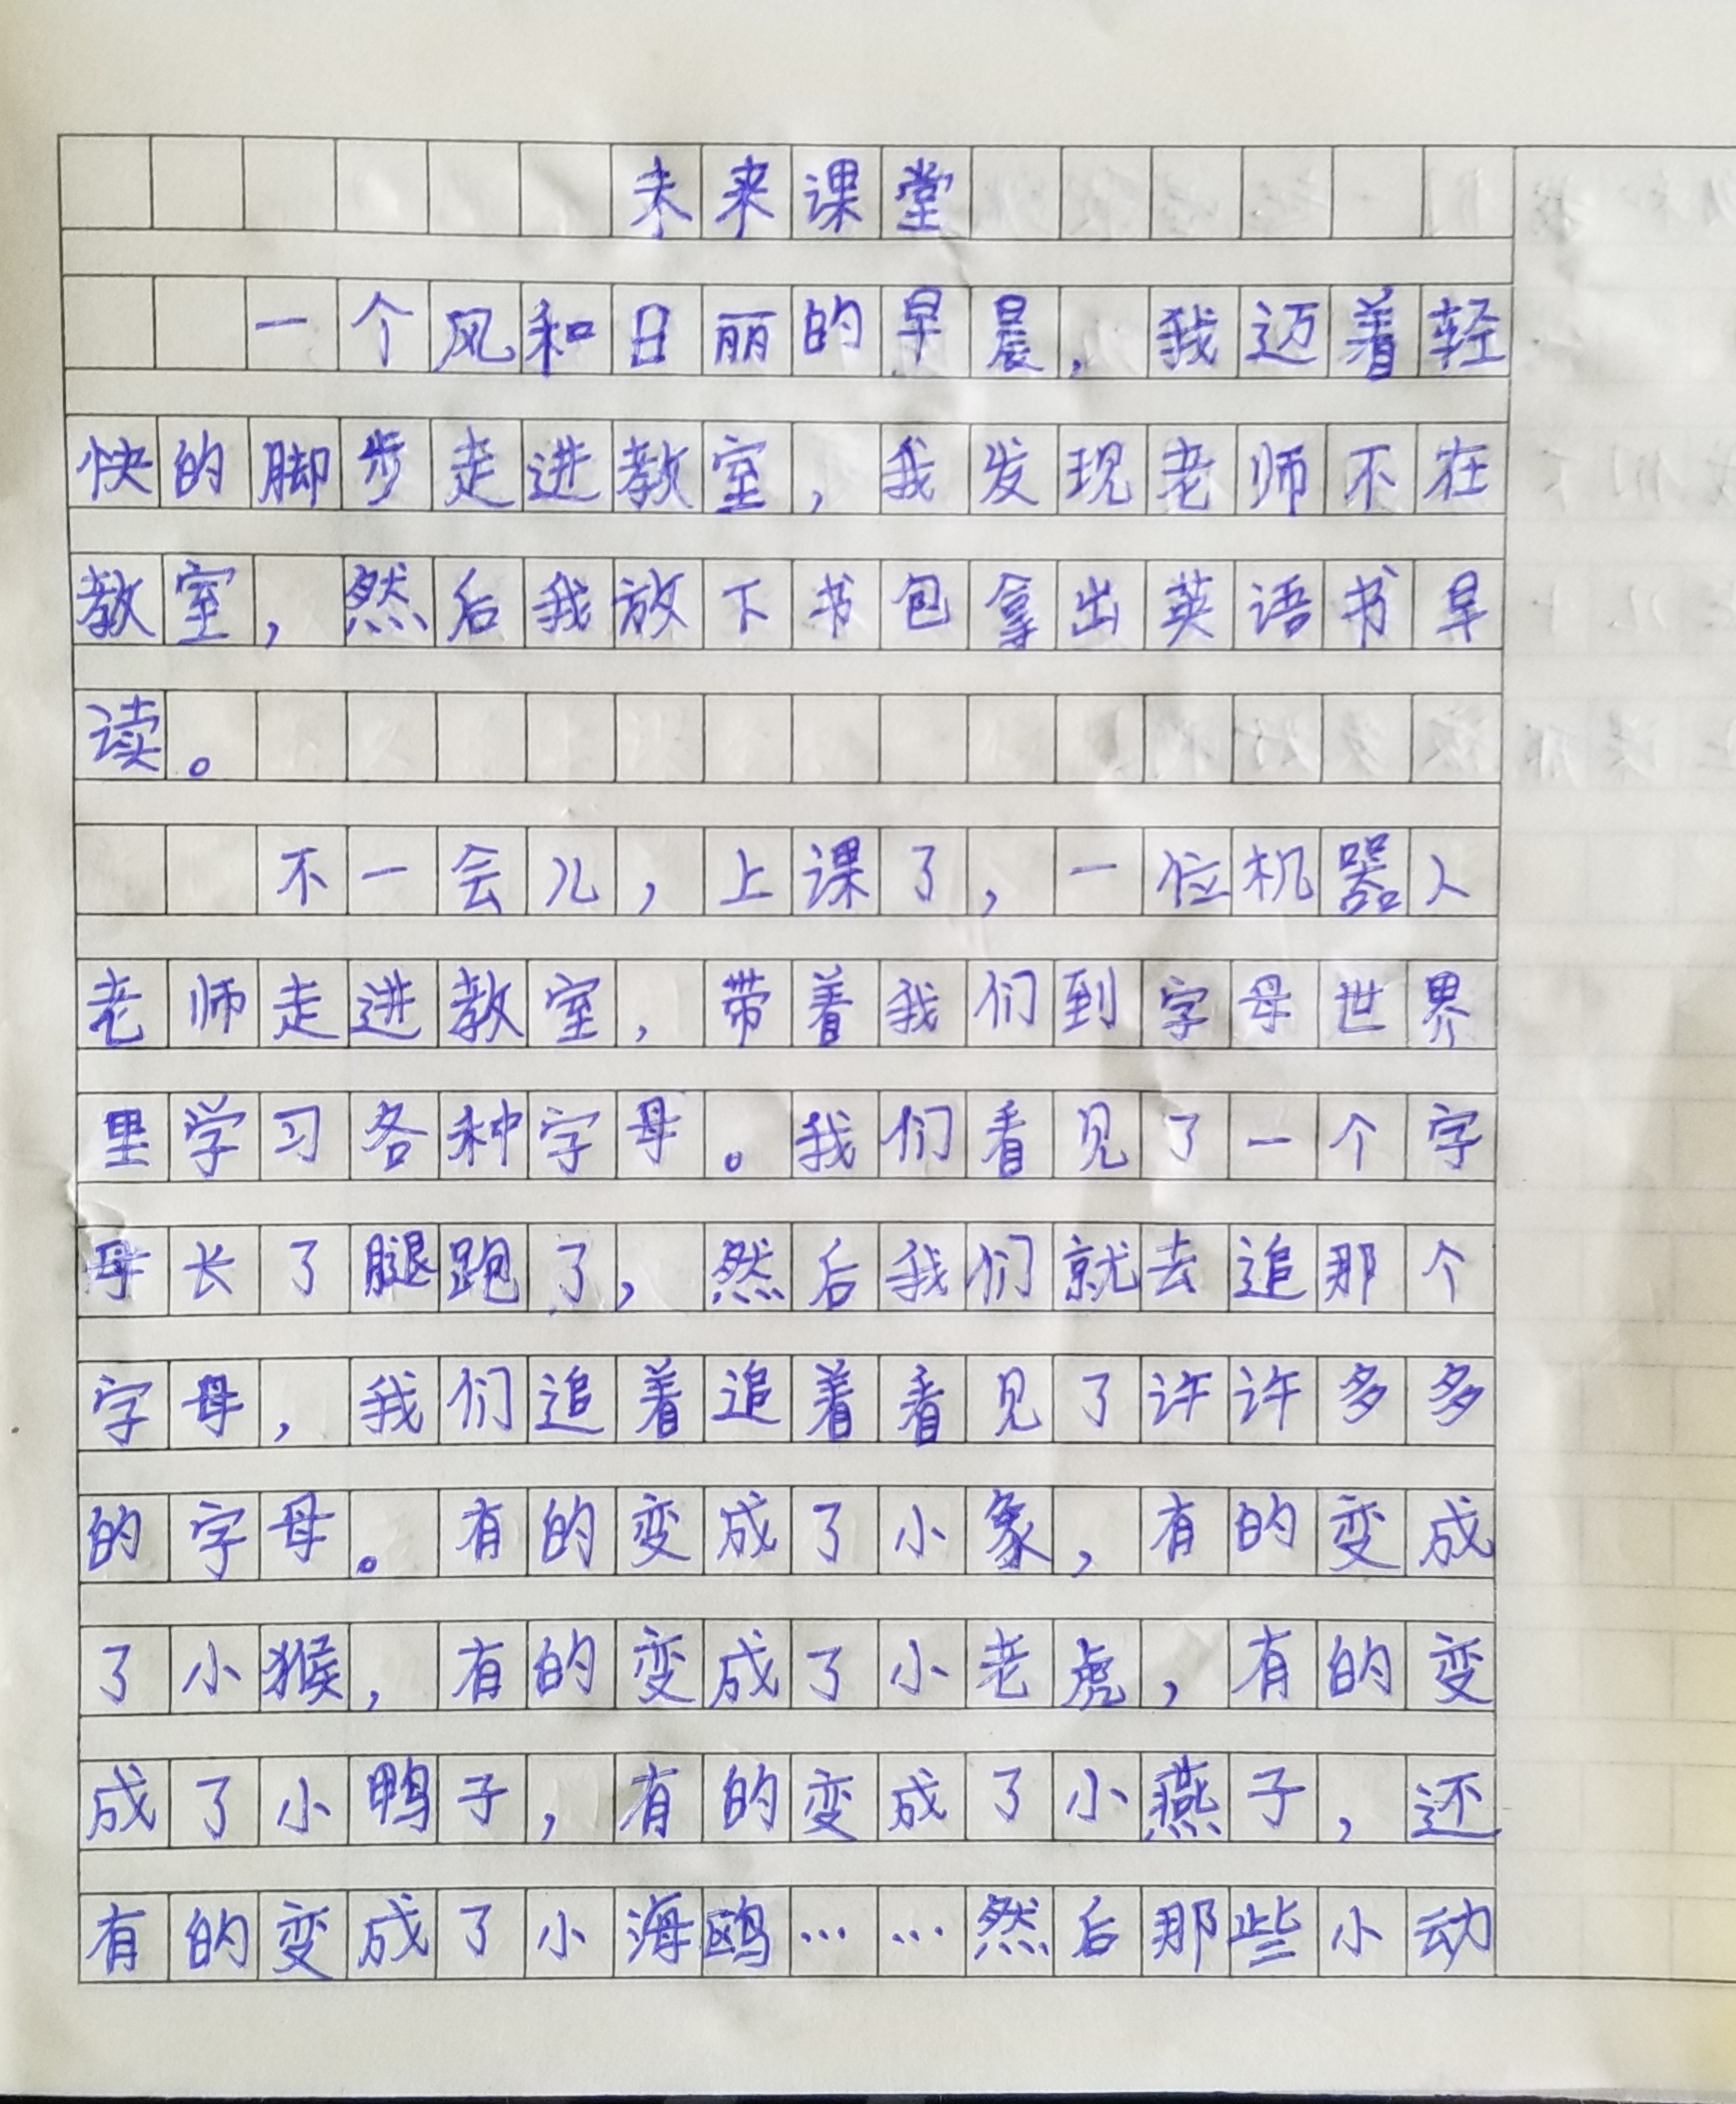 未来课堂
一个风和日丽的早晨，我迈着轻
快的脚步走进教室，我发现老师不在
教室，然后我放下书包拿出英语书早
读。
不一会儿，上课了，一位机器人
老师走进教室，带着我们到字母世界
里学习各种字母。我们看见了一个字
母长了腿跑了，然后我们就去追那个
字母，我们追着追着看见了许许多多
的字母。有的变成了小象，有的变成
了小猴，有的变成了小老虎，有的变
成了小鸭子，有的变成了小燕子，还
有的变成了小海鸥……然后那些小动